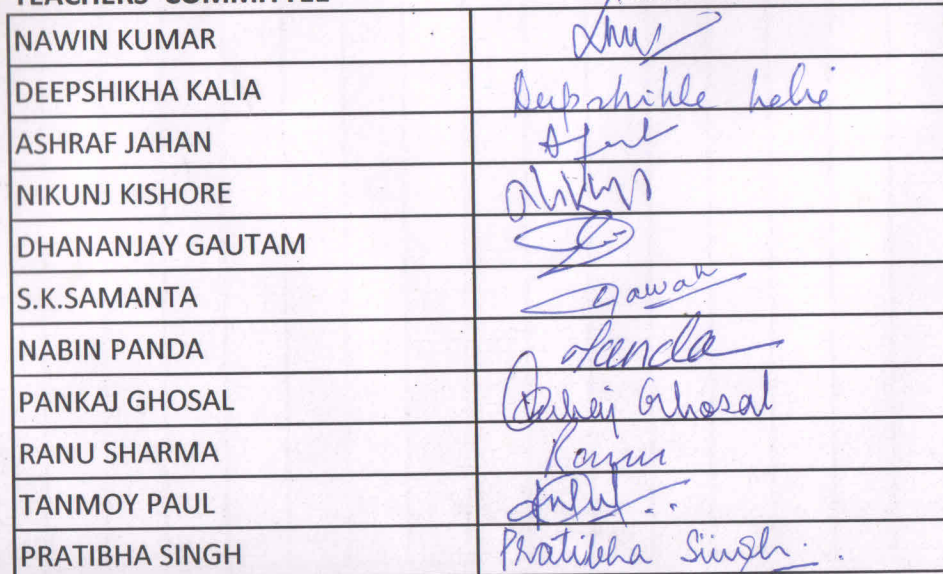 TEACHERS' COMMITTEE
NAWIN KUMAR
DEEPSHIKHA KALIA Deepshikha Kalia
ASHRAF JAHAN
NIKUNJ KISHORE
DHANANJAY GAUTAM
S.K.SAMANTA
NABIN PANDA Panda
PANKAJ GHOSAL Pankaj Ghosal
RANU SHARMA Ranu
TANMOY PAUL
PRATIBHA SINGH Pratibha Singh